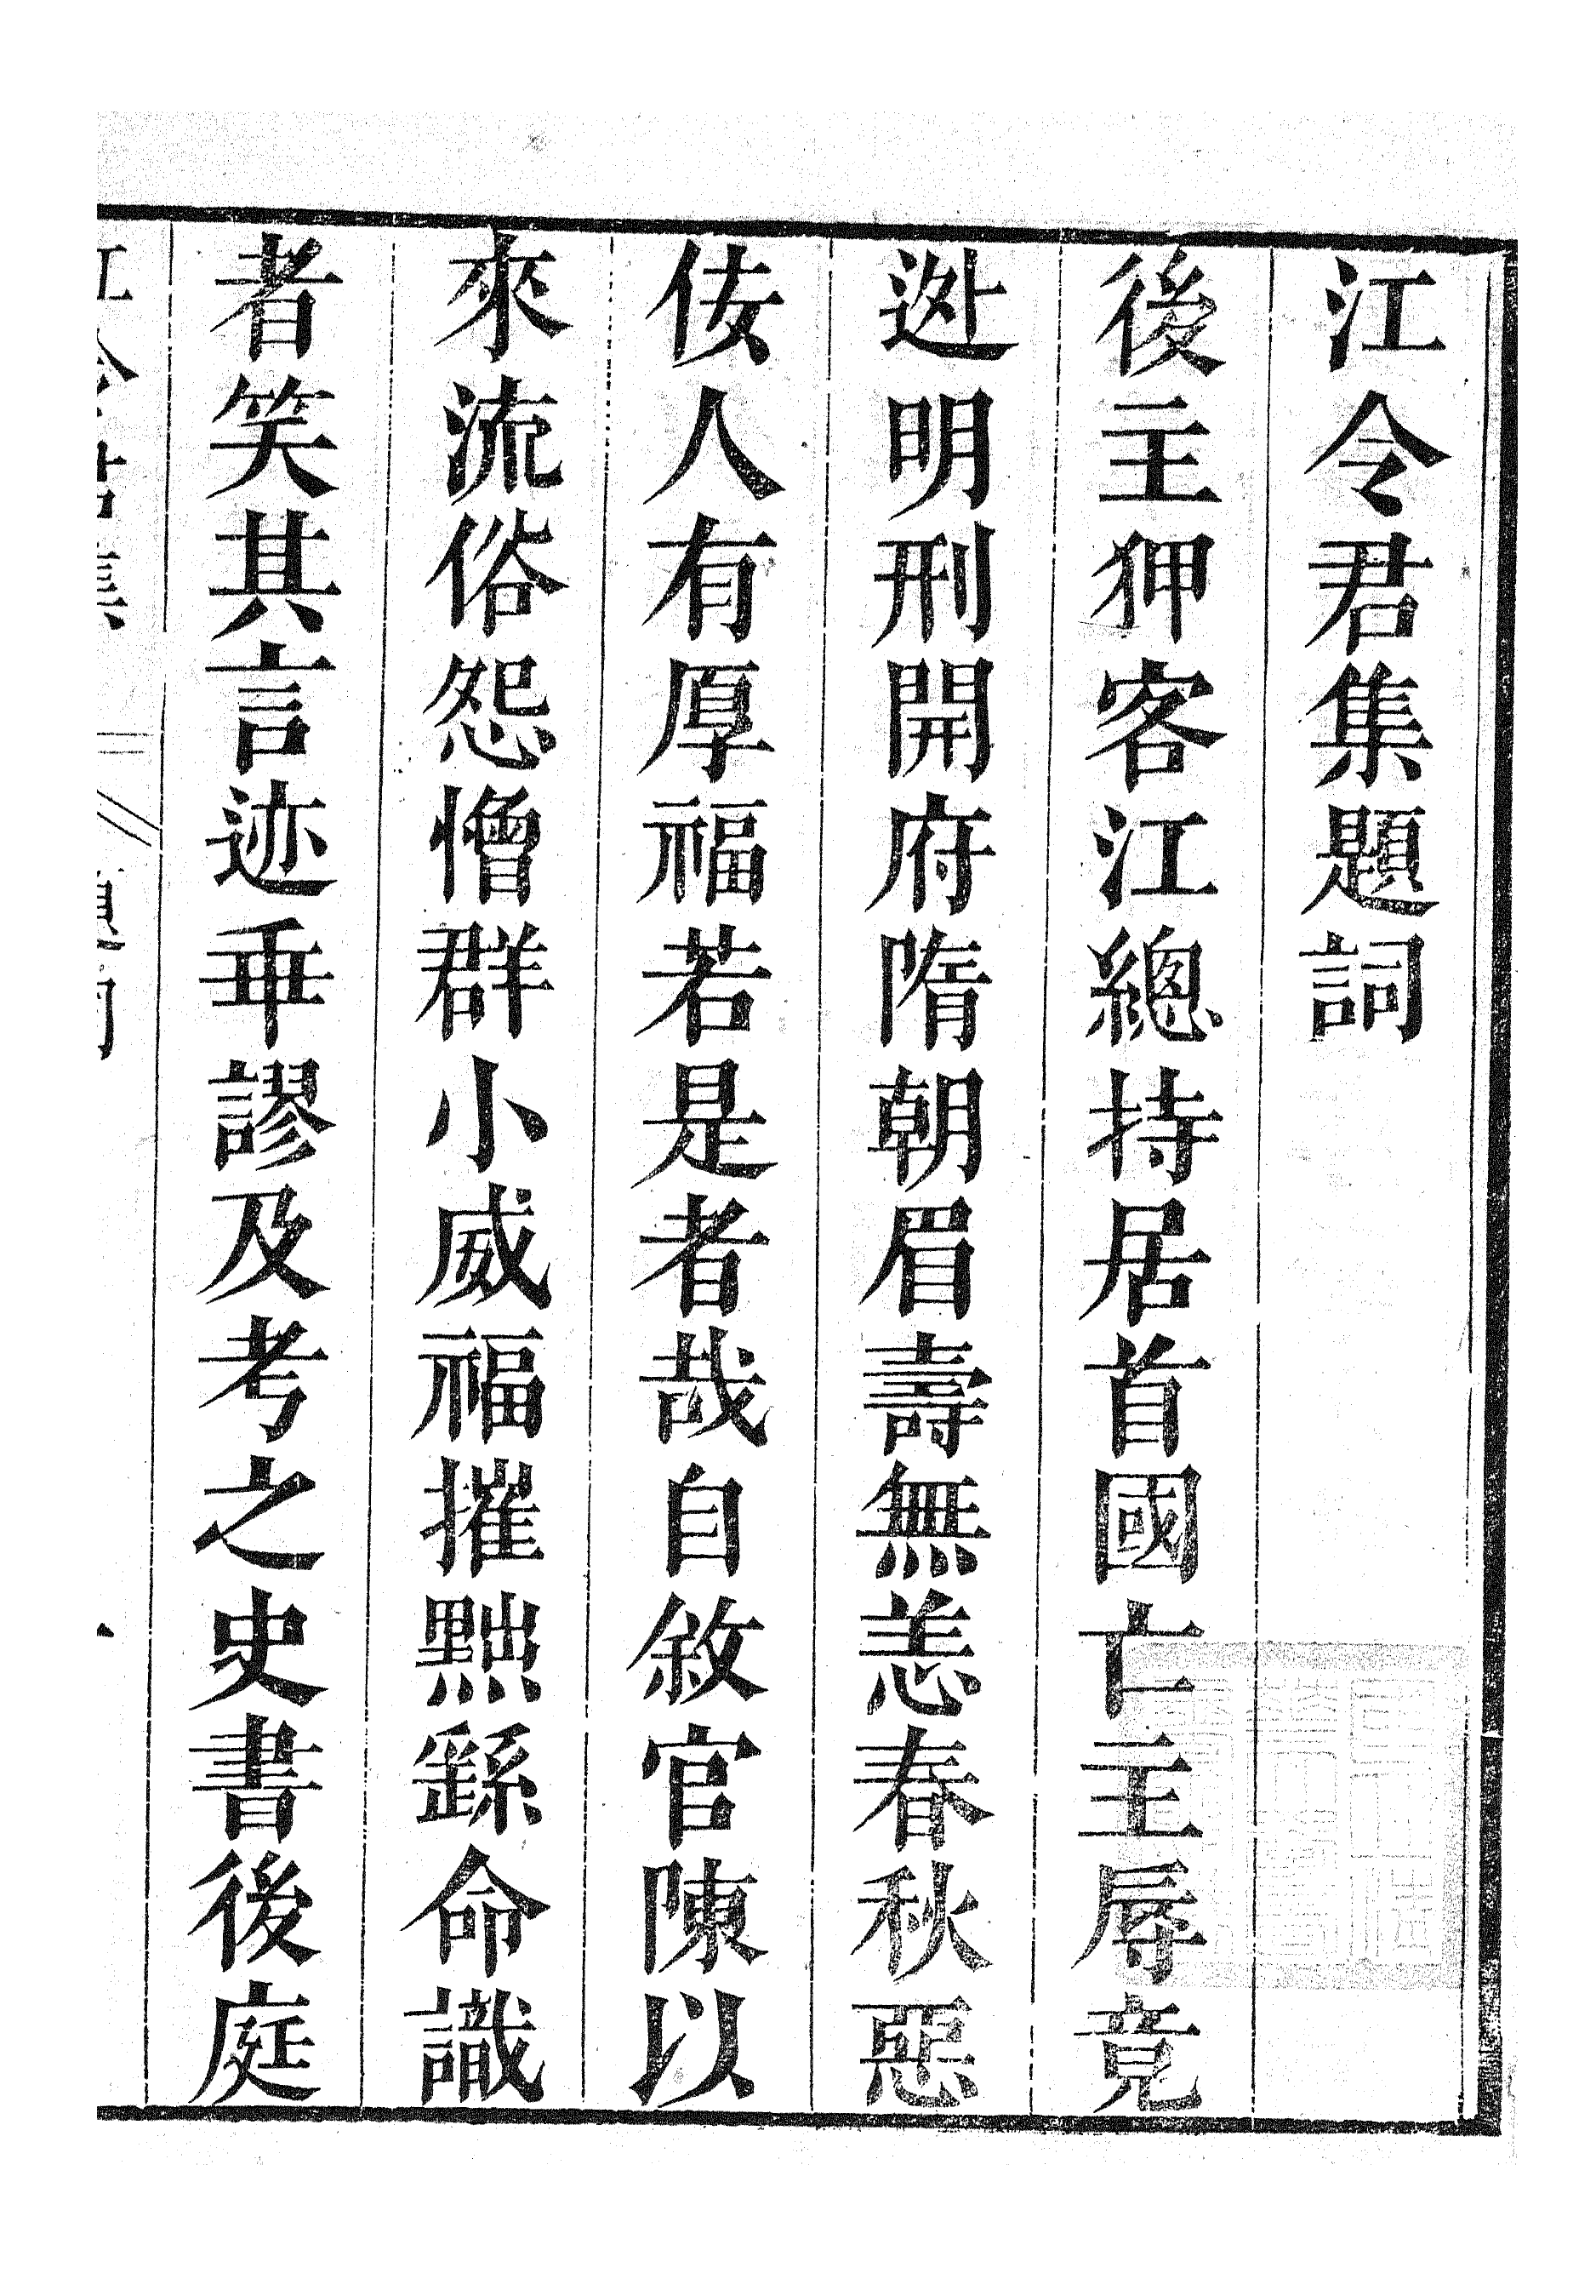 江令君集題詞
後主狎客江總持居首國亡主辱竟
逃明刑開府隋朝眉壽無恙春秋惡
佞人有厚福若是者哉自敘官陳以
來流俗怨憎群小威福摧黜繇命識
者笑其言迹乖謬及考之史書後庭
江令君集
題詞